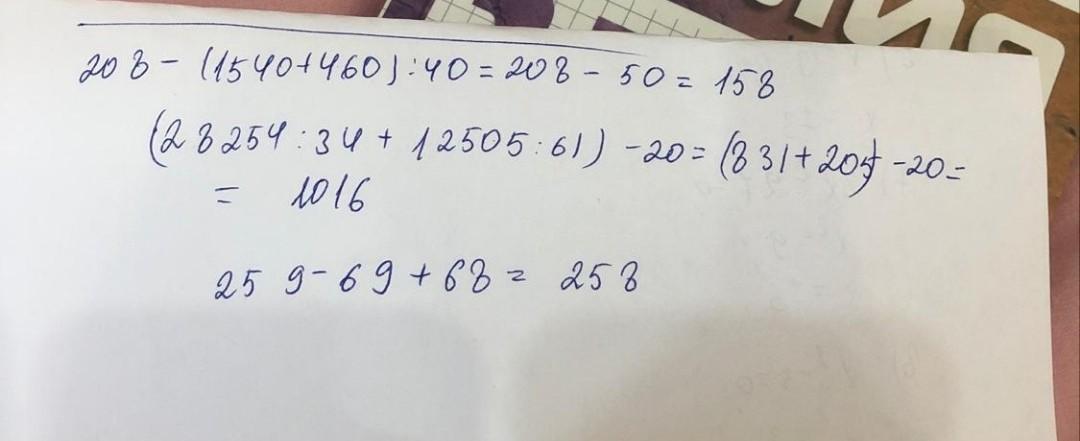 208 - (1540+460):40 = 208 - 50 = 158
(28254:34 + 12505:61) - 20 = (831 + 205) - 20 =
= 1016
259 - 69 + 68 = 258